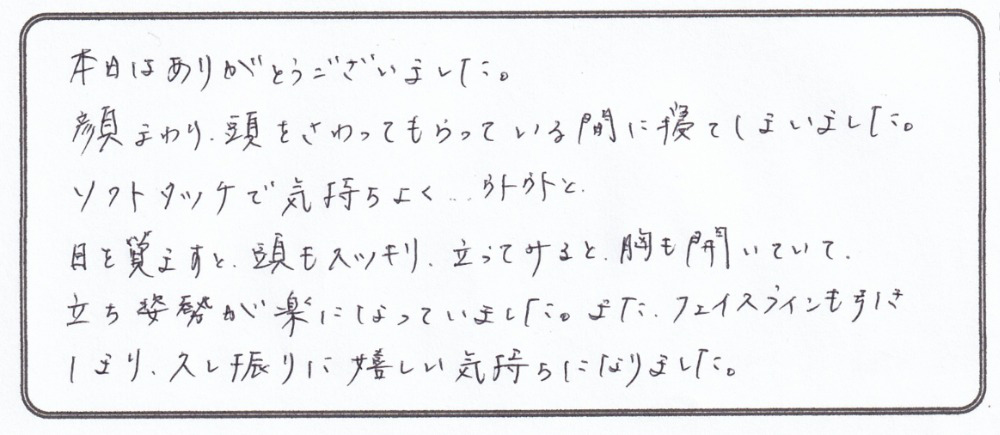 本日はありがとうございました。
顔まわり、頭をさわってもらっている間に寝てしまいました。
ソフトタッチで気持ちよく…ウトウトと、
目を覚ますと、頭もスッキリ、立ってみると、胸も開いていて、
立ち姿勢が楽になっていました。また、フェイスラインも引き
しまり、久し振りに嬉しい気持ちになりました。